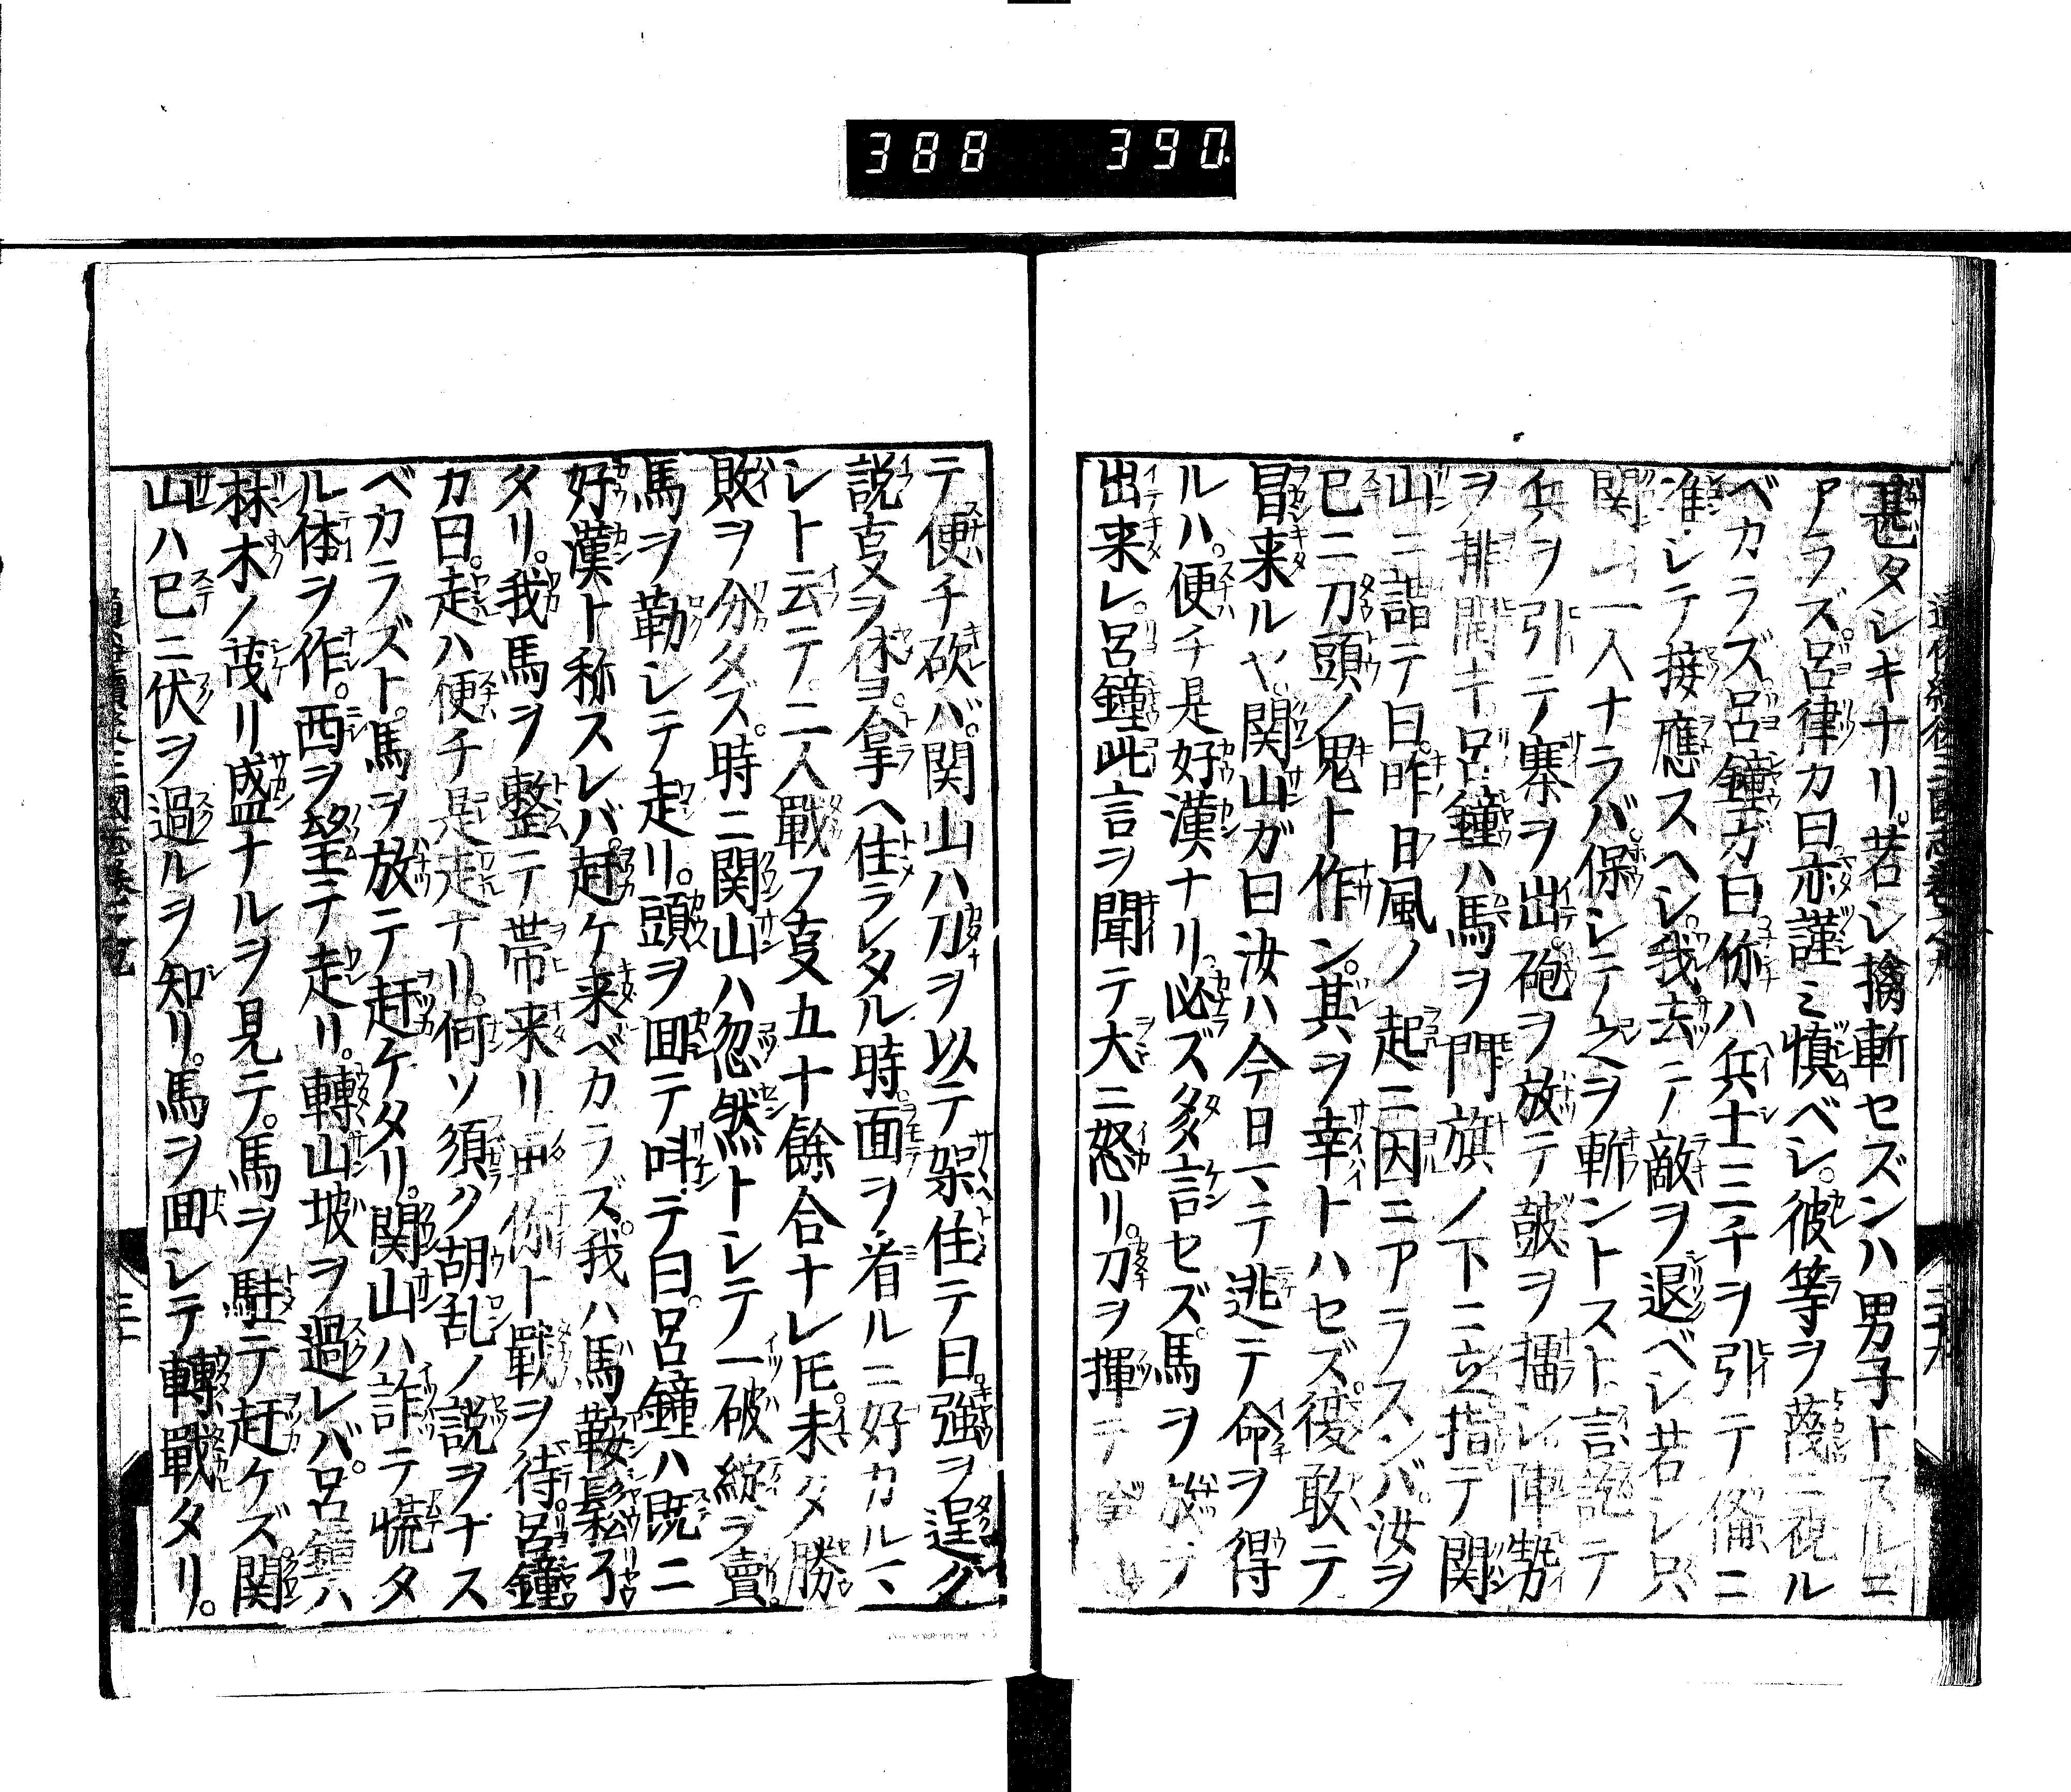 388 390
甚タシキナリ。若シ擒斬セズンハ男子トスルニ
アラズ。呂律カ曰。亦謹ミ慎ベシ。彼等ヲ蔑ニ視ル
ベカラズ。呂鐘ガ曰。你ハ兵士三千ヲ引テ備ニ
准シテ接應スヘシ。我去テ敵ヲ退ベシ若シ只
関山一人ナラバ。保シテ之ヲ斬ントスト言訖テ
兵ヲ引テ寨ヲ出。砲ヲ放テ鼓ヲ擂シ陣勢
ヲ排開キ。呂鐘ハ馬ヲ門旗ノ下ニ立指テ関
山ニ詣テ曰。昨日風ノ起ニ因ニアラスンバ。汝ヲ
已ニ刀頭ノ鬼ト作ン。其ヲ幸トハセズ。復敢テ
冒来ルヤ。関山ガ曰汝ハ今日マテ逃テ命ヲ得
ルハ。便チ是好漢ナリ。必ズ多言セズ。馬ヲ放テ
出来レ。呂鐘此言ヲ聞テ大ニ怒リ。刀ヲ揮テ
テ便チ砍バ。関山ハ刀ヲ以テ架住テ曰。強ヲ逞ク
説叓ヲ休ヨ。拿ヘ住ラレタル時面ヲ看ルニ好カルマ
シト云テ。二人戰フ叓五十餘合ナレ𪜈。未タ勝
敗ヲ分タズ。時ニ関山ハ忽然トシテ一破綻ヲ賣。
馬ヲ勒シテ走リ。頭ヲ囬テ呌テ曰。呂鐘ハ既ニ
好漢ト称スレバ。赶ケ来ベカラズ。我ハ馬鞍鬆
タリ。我馬ヲ整テ帯来リ你ト戰ヲ待。呂鐘
カ曰。走ハ便チ是走ナリ。何ソ須ク胡乱ノ説ヲナス
ベカラズト。馬ヲ放テ赶ケタリ。関山ハ詐テ慌タ
ル体ヲ作。西ヲ望テ走リ。轉山坡ヲ過レバ。呂鐘ハ
林木ノ茂リ盛ナルヲ見テ。馬ヲ駐テ赶ケズ関
山ハ已ニ伏ヲ過ルヲ知リ。馬ヲ囬シテ轉戰タリ。
三十